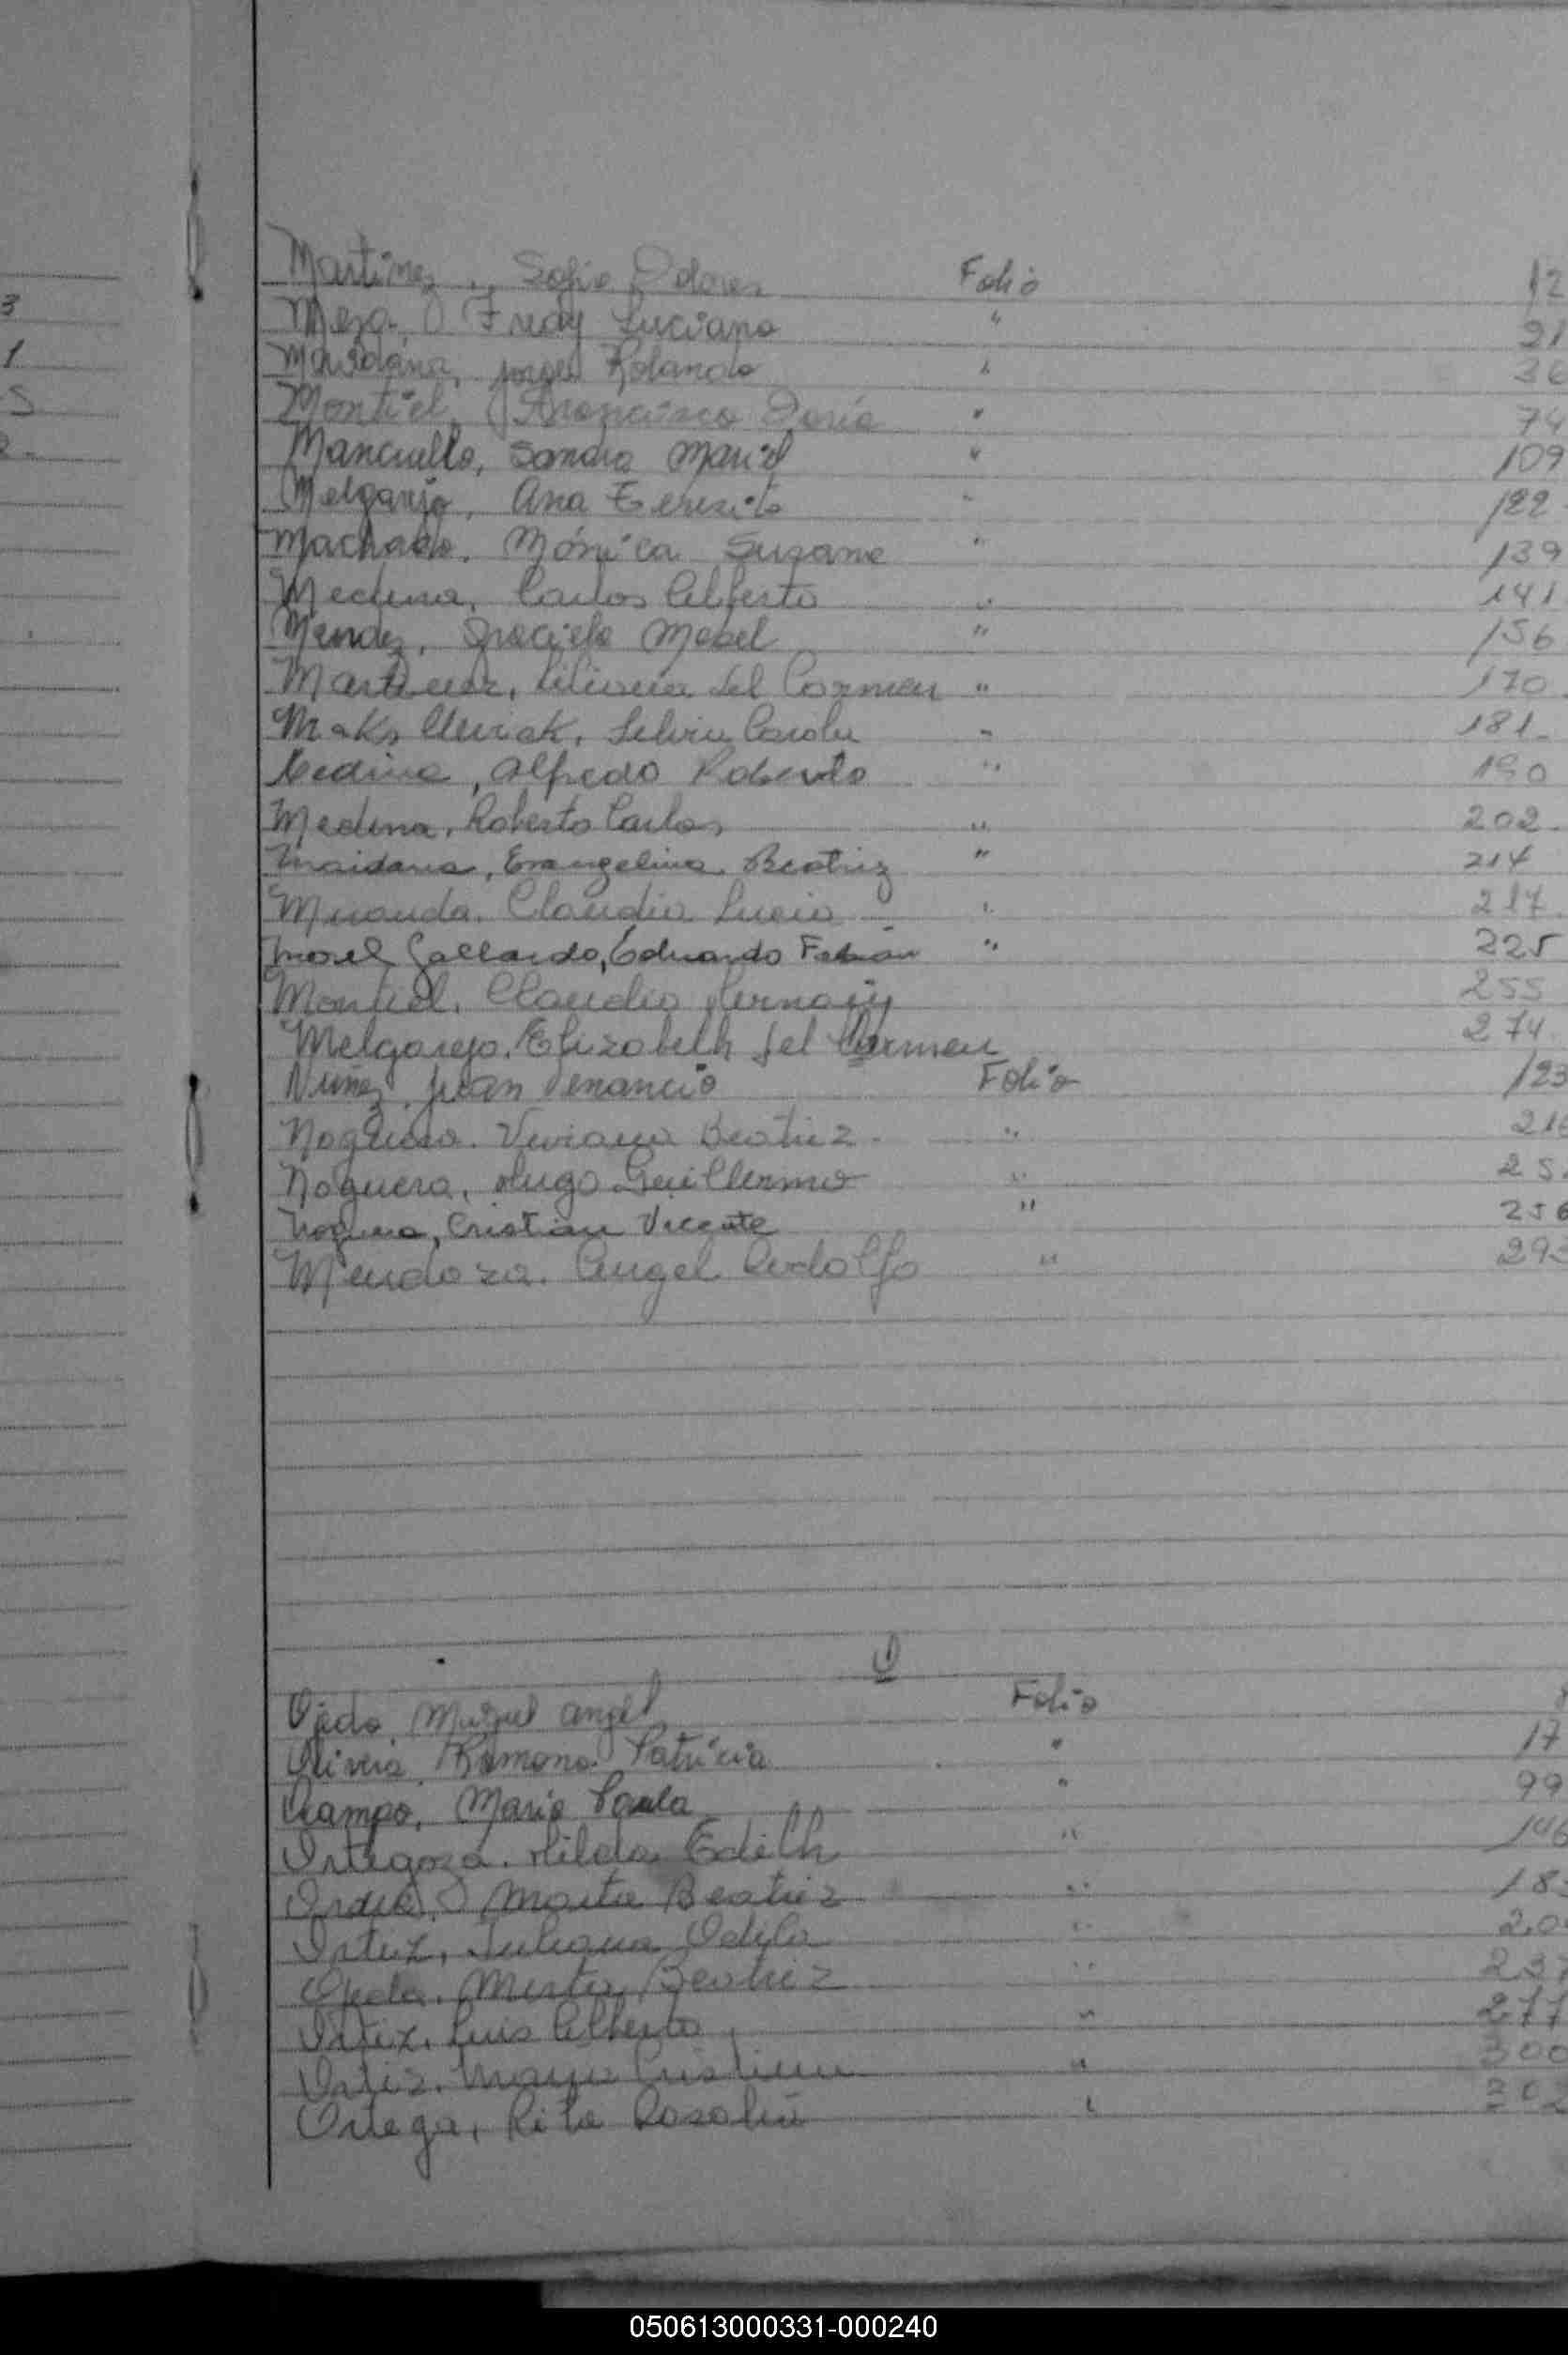 Martinez, Sofia Dolores Folio 12
Meza, Fredy Luciano " 21
Maidana, Jorge Rolando " 36
Montiel, Francisco Darío " 74
Manciello, Sandra Mariel " 109
Melgarejo, Ana Teresita " 122
Machado, Mónica Susana " 139
Medina, Carlos Alberto " 141
Mendez, Graciela Mabel " 156
Martinez, Liliana del Carmen " 170
Silvia " 181.
Medina, Alfredo Roberto " 190
Medina, Roberto Carlos " 202
Maidana, Evangelina Beatriz " 214
Miranda, Claudia Lucia " 217
Morel Gallardo, Eduardo Fabián " 225
Montiel, Claudio 255
Melgarejo, Elizabeth del Carmen 274
Nuñez, Juan Venancio Folio 123
Noguera, Viviana Beatriz. " 216
Noguera, Hugo Guillermo " 25
Noguera, Cristian Vicente " 256
Mendoza, Angel Rodolfo " 293
O
Ojeda, Miguel Angel Folio
Oliveira, Ramona Patricia " 17
Ocampo, Maria Paula " 99
Ortegoza, Hilda Edith " 146
Marta Beatriz " 18
Ortiz, Juliana Odila " 20
Ojeda, Mirta Beatriz " 237
Ortiz, Luis Alberto " 277
Ortiz, Cristina " 300
Ortega, Rita Rosalia " 302
3
1
5
2
050613000331-000240